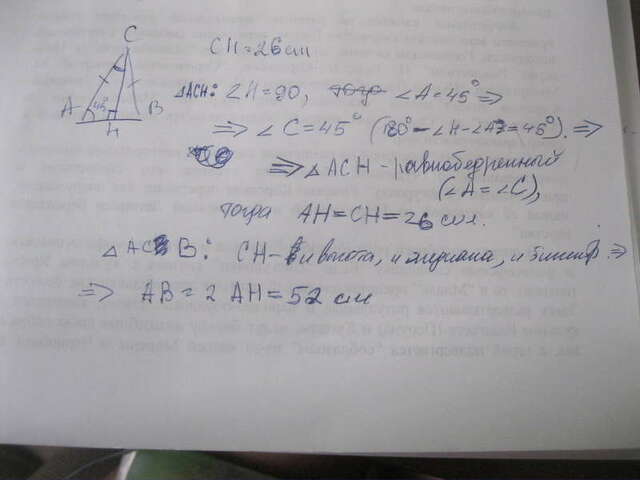 C
A
45°
H
B
CH=26 см
△ACH: ∠H=90, ∠A=45° ⇒
⇒ ∠C=45° (180°-∠H-∠A=45°). ⇒
⇒ △ACH - равнобедренный
(∠A=∠C),
тогда AH=CH=26 см.
△ACB: CH - и высота, и медиана, и биссектр. ⇒
⇒ AB=2 AH=52 см